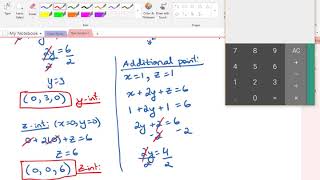 My Notebook
y
2y = 6
2 2
y = 3
(0, 3, 0) y-int:
z-int: (x=0, y=0)
0 + 2(0) + z = 6
z = 6
(0, 0, 6) z-int:
Additional point:
x = 1, z = 1
x + 2y + z = 6
1 + 2y + 1 = 6
2y + 2 = 6
-2 -2
2y = 4
2 2
7 8 9 AC
4 5 6
1 2 3
0